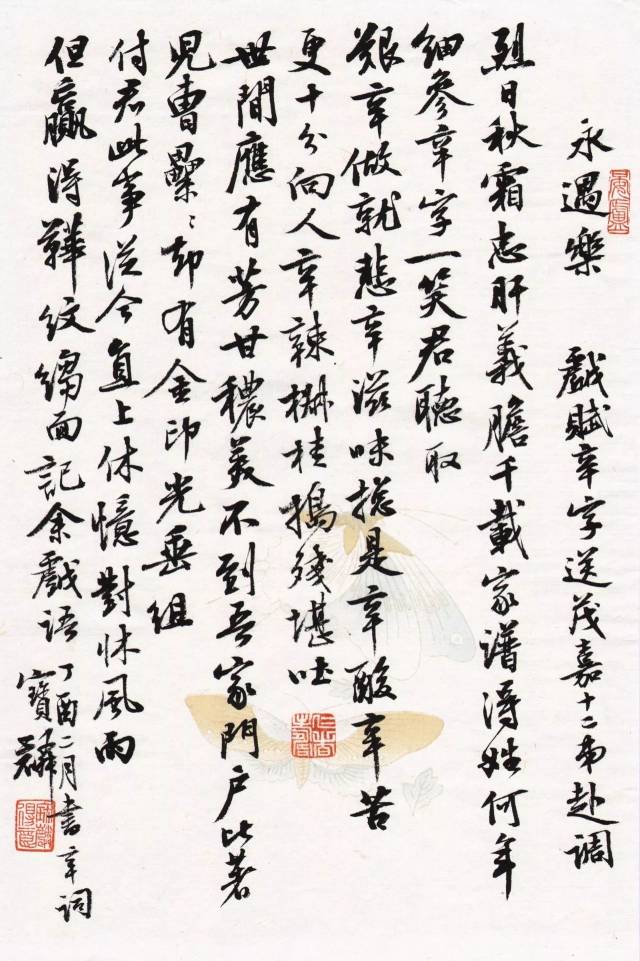 永遇樂 戲賦辛字送茂嘉十二弟赴調
烈日秋霜忠肝義膽千載家譜得姓何年
細參辛字一笑君聽取
艱辛做就悲辛滋味總是辛酸辛苦
更十分向人辛辣椒桂搗殘堪吐
世間應有芳甘穠美不到吾家門戶比著
兒曹纍々却有金印光垂組
付君此事從今直上休憶對牀風雨
但贏得鞾紋縐面記余戲語
丁酉二月書辛詞
寶麟